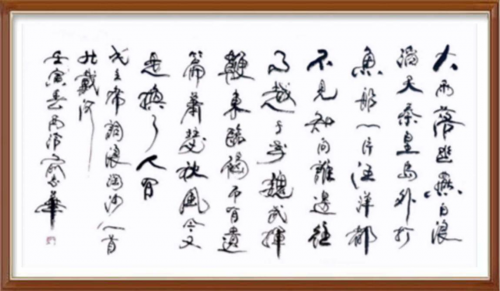 大雨落幽燕白浪
滔天秦皇島外打
魚船一片汪洋都
不見知向誰邊往
事越千年魏武揮
鞭東臨碣石有遺
篇蕭瑟秋風今又
是換了人間
毛主席詞浪淘沙一首
北戴河
壬寅春華